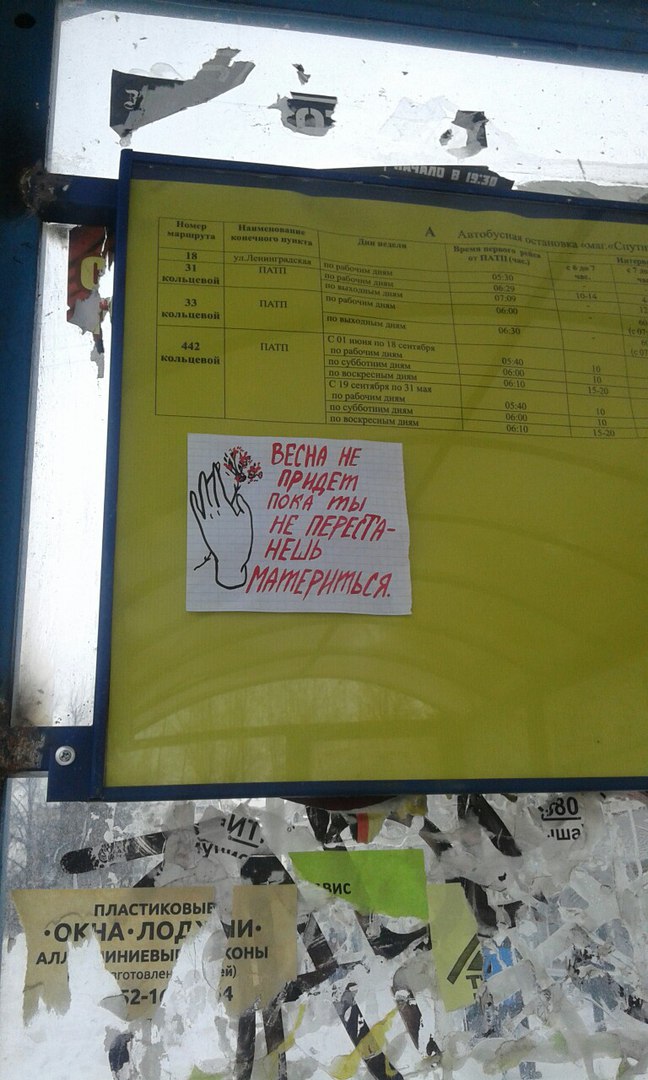 НАЧАЛО В 19:30
А Автобусная остановка «маг.«Спутн
Номер маршрута Наименование конечного пункта Дни недели Время первого рейса от ПАТП (час.) с 6 до 7 час. Интерв
с 7 д
18 ул.Ленинградская по рабочим дням 05:30
31 кольцевой ПАТП по рабочим дням 06:29
по выходным дням 07:09 10-14
33 кольцевой ПАТП по рабочим дням 06:00
по выходным дням 06:30
442 кольцевой ПАТП С 01 июня по 18 сентября
по рабочим дням 05:40 10
по субботним дням 06:00 10
по воскресным дням 06:10 15-20
С 19 сентября по 31 мая
по рабочим дням 05:40 10
по субботним дням 06:00 10
по воскресным дням 06:10 15-20
ВЕСНА НЕ
ПРИДЕТ
ПОКА ТЫ
НЕ ПЕРЕСТА-
НЕШЬ
МАТЕРИТЬСЯ.
80
ша
ВИС
ПЛАСТИКОВЫЕ
·ОКНА·ЛОДЖИИ·